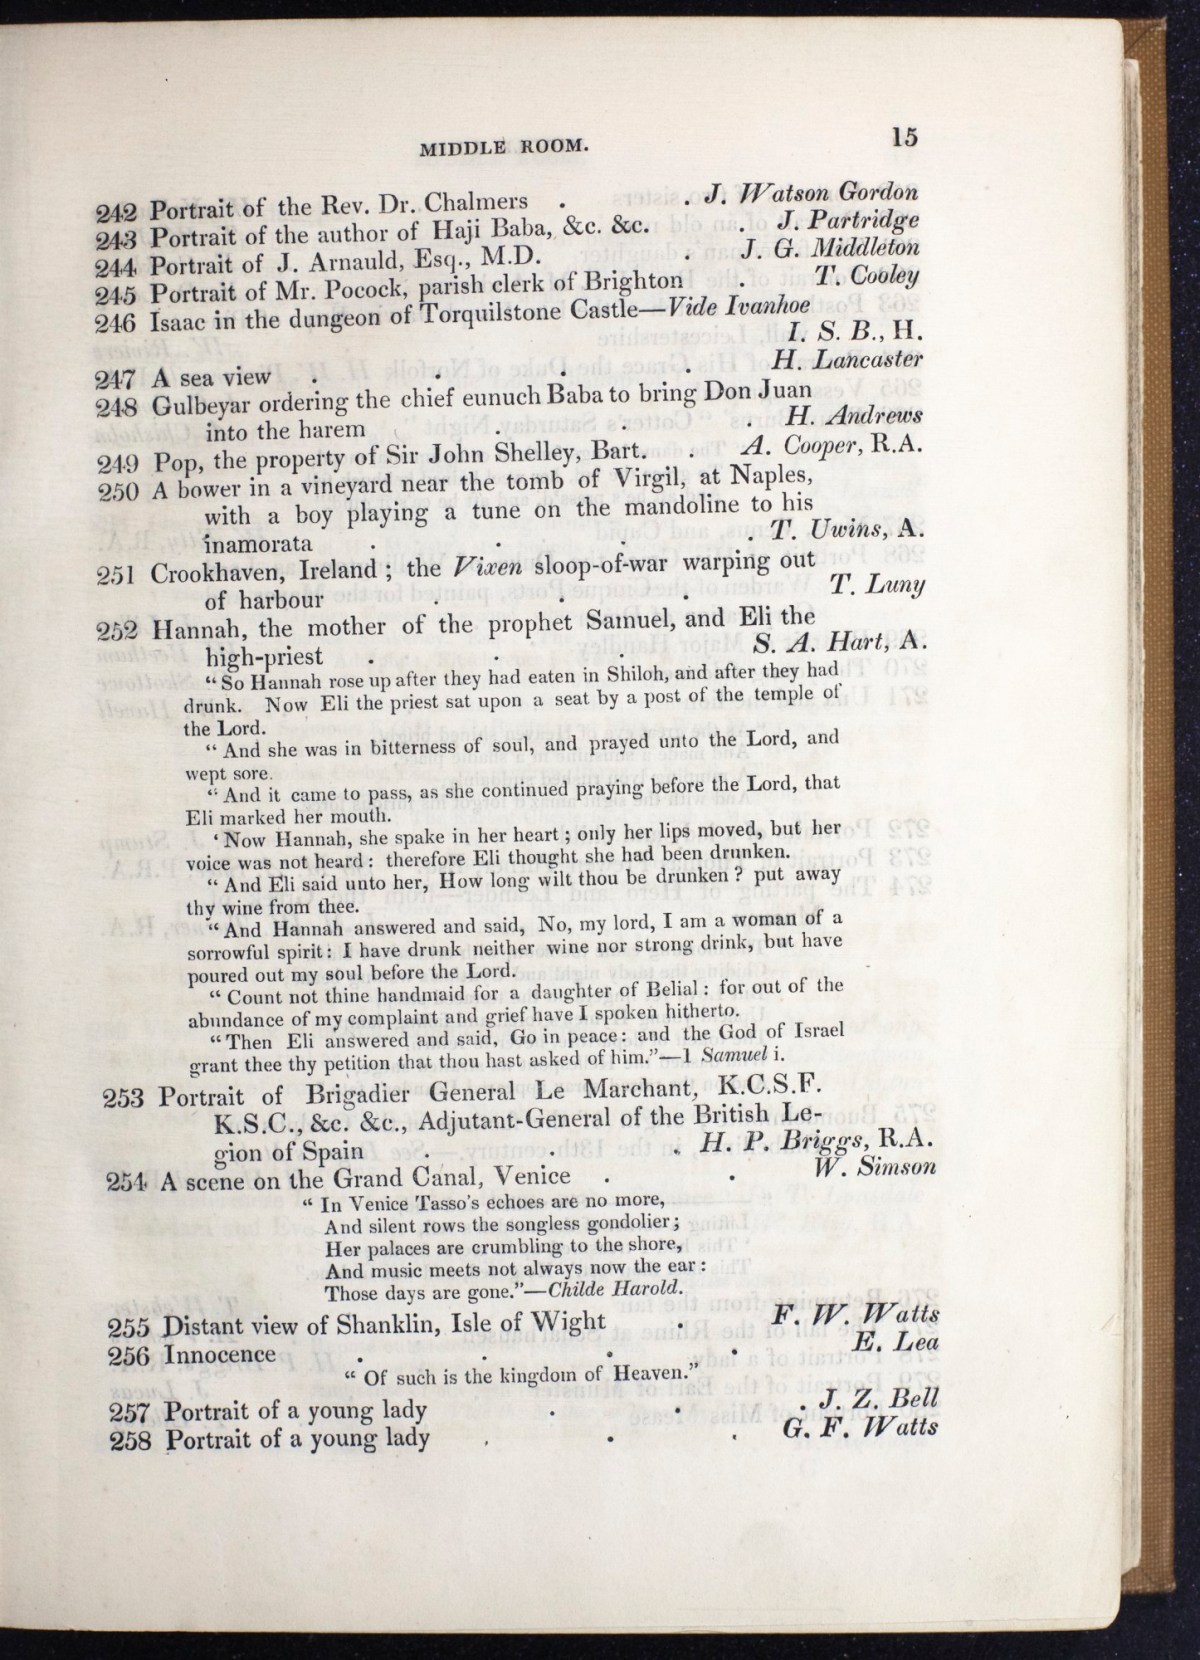 MIDDLE ROOM. 15
242 Portrait of the Rev. Dr. Chalmers . . J. Watson Gordon
243 Portrait of the author of Haji Baba, &c. &c. . J. Partridge
244 Portrait of J. Arnauld, Esq., M.D. . J. G. Middleton
245 Portrait of Mr. Pocock, parish clerk of Brighton . T. Cooley
246 Isaac in the dungeon of Torquilstone Castle—Vide Ivanhoe
I. S. B., H.
247 A sea view . . . . H. Lancaster
248 Gulbeyar ordering the chief eunuch Baba to bring Don Juan
into the harem . . . H. Andrews
249 Pop, the property of Sir John Shelley, Bart. . A. Cooper, R.A.
250 A bower in a vineyard near the tomb of Virgil, at Naples,
with a boy playing a tune on the mandoline to his
inamorata . . . . T. Uwins, A.
251 Crookhaven, Ireland ; the Vixen sloop-of-war warping out
of harbour . . . T. Luny
252 Hannah, the mother of the prophet Samuel, and Eli the
high-priest . . . S. A. Hart, A.
“ So Hannah rose up after they had eaten in Shiloh, and after they had
drunk. Now Eli the priest sat upon a seat by a post of the temple of
the Lord.
“ And she was in bitterness of soul, and prayed unto the Lord, and
wept sore.
“ And it came to pass, as she continued praying before the Lord, that
Eli marked her mouth.
‘ Now Hannah, she spake in her heart ; only her lips moved, but her
voice was not heard : therefore Eli thought she had been drunken.
“ And Eli said unto her, How long wilt thou be drunken ? put away
thy wine from thee.
“ And Hannah answered and said, No, my lord, I am a woman of a
sorrowful spirit : I have drunk neither wine nor strong drink, but have
poured out my soul before the Lord.
“ Count not thine handmaid for a daughter of Belial : for out of the
abundance of my complaint and grief have I spoken hitherto.
“ Then Eli answered and said, Go in peace : and the God of Israel
grant thee thy petition that thou hast asked of him.”—1 Samuel i.
253 Portrait of Brigadier General Le Marchant, K.C.S.F.
K.S.C., &c. &c., Adjutant-General of the British Le-
gion of Spain . . . H. P. Briggs, R.A.
254 A scene on the Grand Canal, Venice . . W. Simson
“ In Venice Tasso’s echoes are no more,
And silent rows the songless gondolier ;
Her palaces are crumbling to the shore,
And music meets not always now the ear :
Those days are gone.”—Childe Harold.
255 Distant view of Shanklin, Isle of Wight . F. W. Watts
256 Innocence . . . . E. Lea
“ Of such is the kingdom of Heaven.”
257 Portrait of a young lady . . . J. Z. Bell
258 Portrait of a young lady . . . G. F. Watts